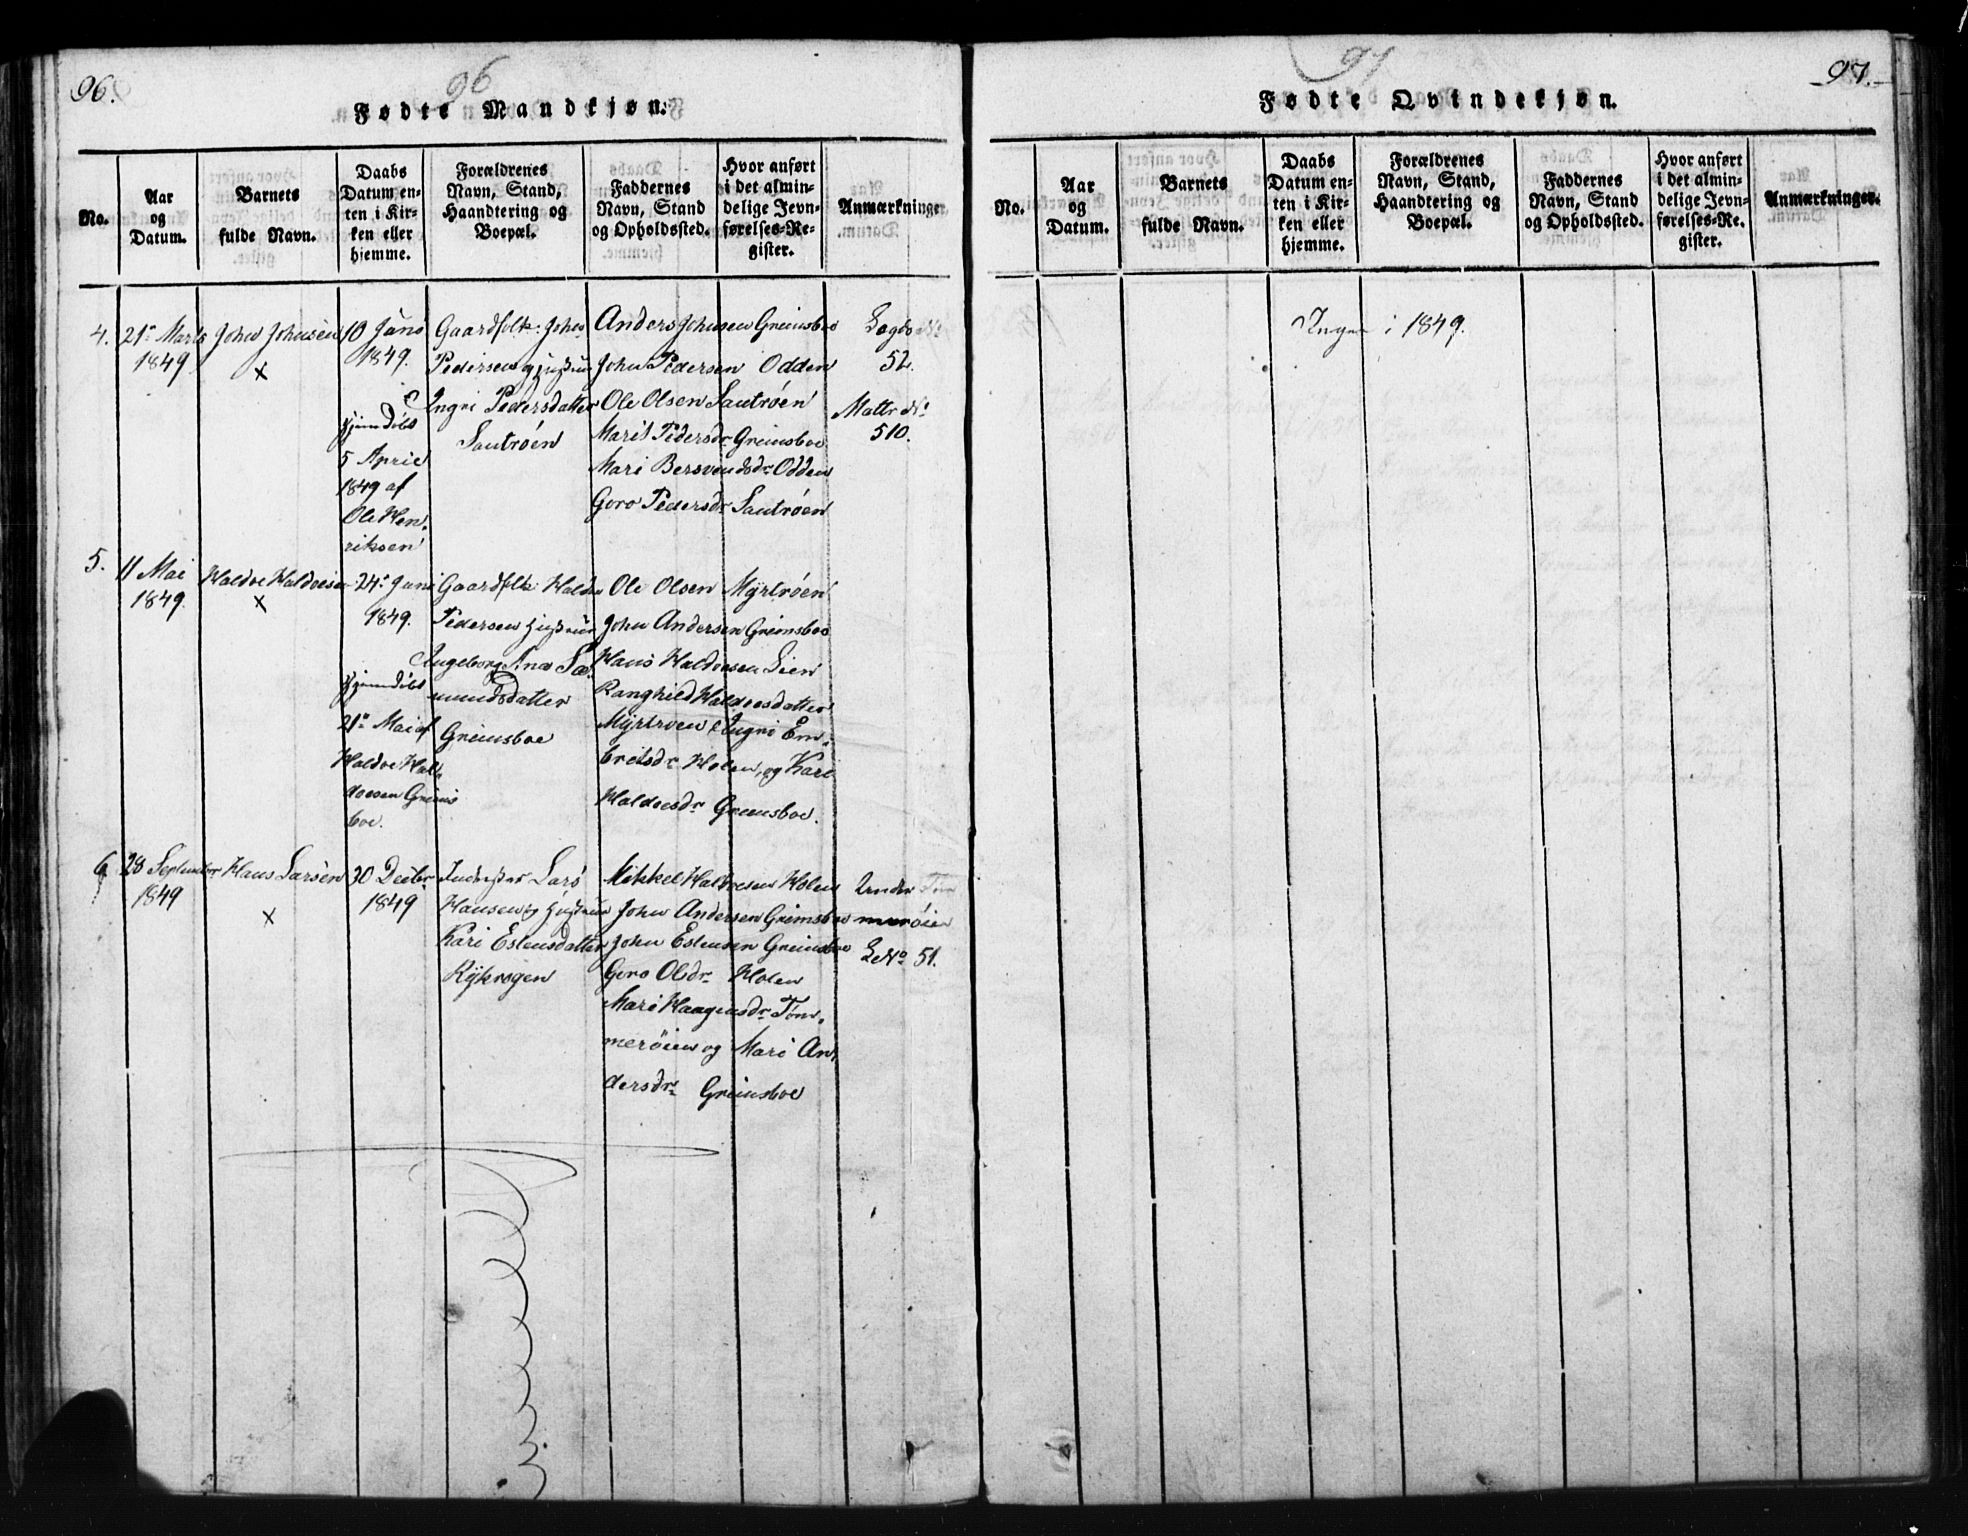 96.
96
Fødte Mandkjøn.
No.
Aar
og
Datum.
Barnets
fulde Navn.
Daabs
Datum en-
ten i Kir-
ken eller
hjemme.
Forældrenes
Navn, Stand,
Haandtering og
Boepæl.
Faddernes
Navn, Stand
og Opholdssted.
Hvor anført
i det almin-
delige Jevn-
førelses-Re-
gister.
Anmærkninger
4.
21de Marts
1849
John Johnsen
×
10 Juni
1849.
Hjemdöbt
5 April
1849 af
Ole Hen-
riksen
Gaardfolk: John
Pedersen og Hustrue
Ingri Pedersdatter
Sautröen
Anders Johnsen Grimsboe
John Pedersen Odden
Ole Olsen Sautröen
Marit Pedersdr Grimsboe
Mari Bersvendsdr Odden
Goro Pedersdr Sautröen
52.
Mattr No
510.
5.
11 Mai
1849.
Haldoe Haldoesen
×
24de Juni
1849.
Hjemdöbt
21de Mai af
Haldoe Hal-
doesen Grims
boe.
Gaardfolk Haldoe
Pedersen Hustrue
Ingeborg Ana Sæ-
mundsdatter
Grimsboe
Ole Olsen Myrtröen
John Andersen Grimsboe
Hans Haldoesen Lien
Ranghild Haldoesdatter
Myrtroen Ingri Em-
bretsdr Holen, og Kari
Haldoesdr Grimsboe.
6
28 September
1849
Hans Larsen
×
30 Decbr
1849
Inderster Lars
Hansen og Hustrue
Kari Estensdatter
Rykrogen
Mikkel Haldoesen Holen
John Andersen Grimsboe
John Estensen Grimsboe
Goro Olsdr Holen
Mari Haagensdr Töm-
meröien og Mari An-
dersdr Grimsboe
Under Töm
meröien
LNo 51.
97.
97
Fødte Qvindekjøn.
No.
Aar
og
Datum.
Barnets
fulde Navn.
Daabs
Datum en-
ten i Kir-
ken eller
hjemme.
Forældrenes
Navn, Stand,
Haandtering og
Boepæl.
Faddernes
Navn, Stand
og Opholdssted.
Hvor anført
i det almin-
delige Jevn-
førelses-Re-
gister.
Anmærkninger.
Ingen i 1849.